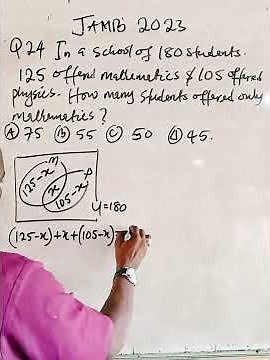 JAMB 2023
Q24 In a school of 180 students.
125 offered mathematics & 105 offered
physics. How many students offered only
mathematics?
(A) 75 (B) 55 (C) 50 (D) 45.
M
P
125-x
x
105-x
U=180
(125-x)+x+(105-x)=